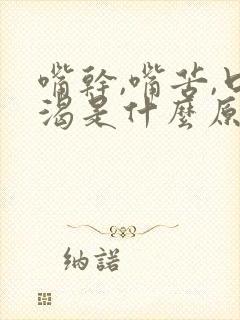 嘴幹,嘴苦,口
渴是什麼原
納諾